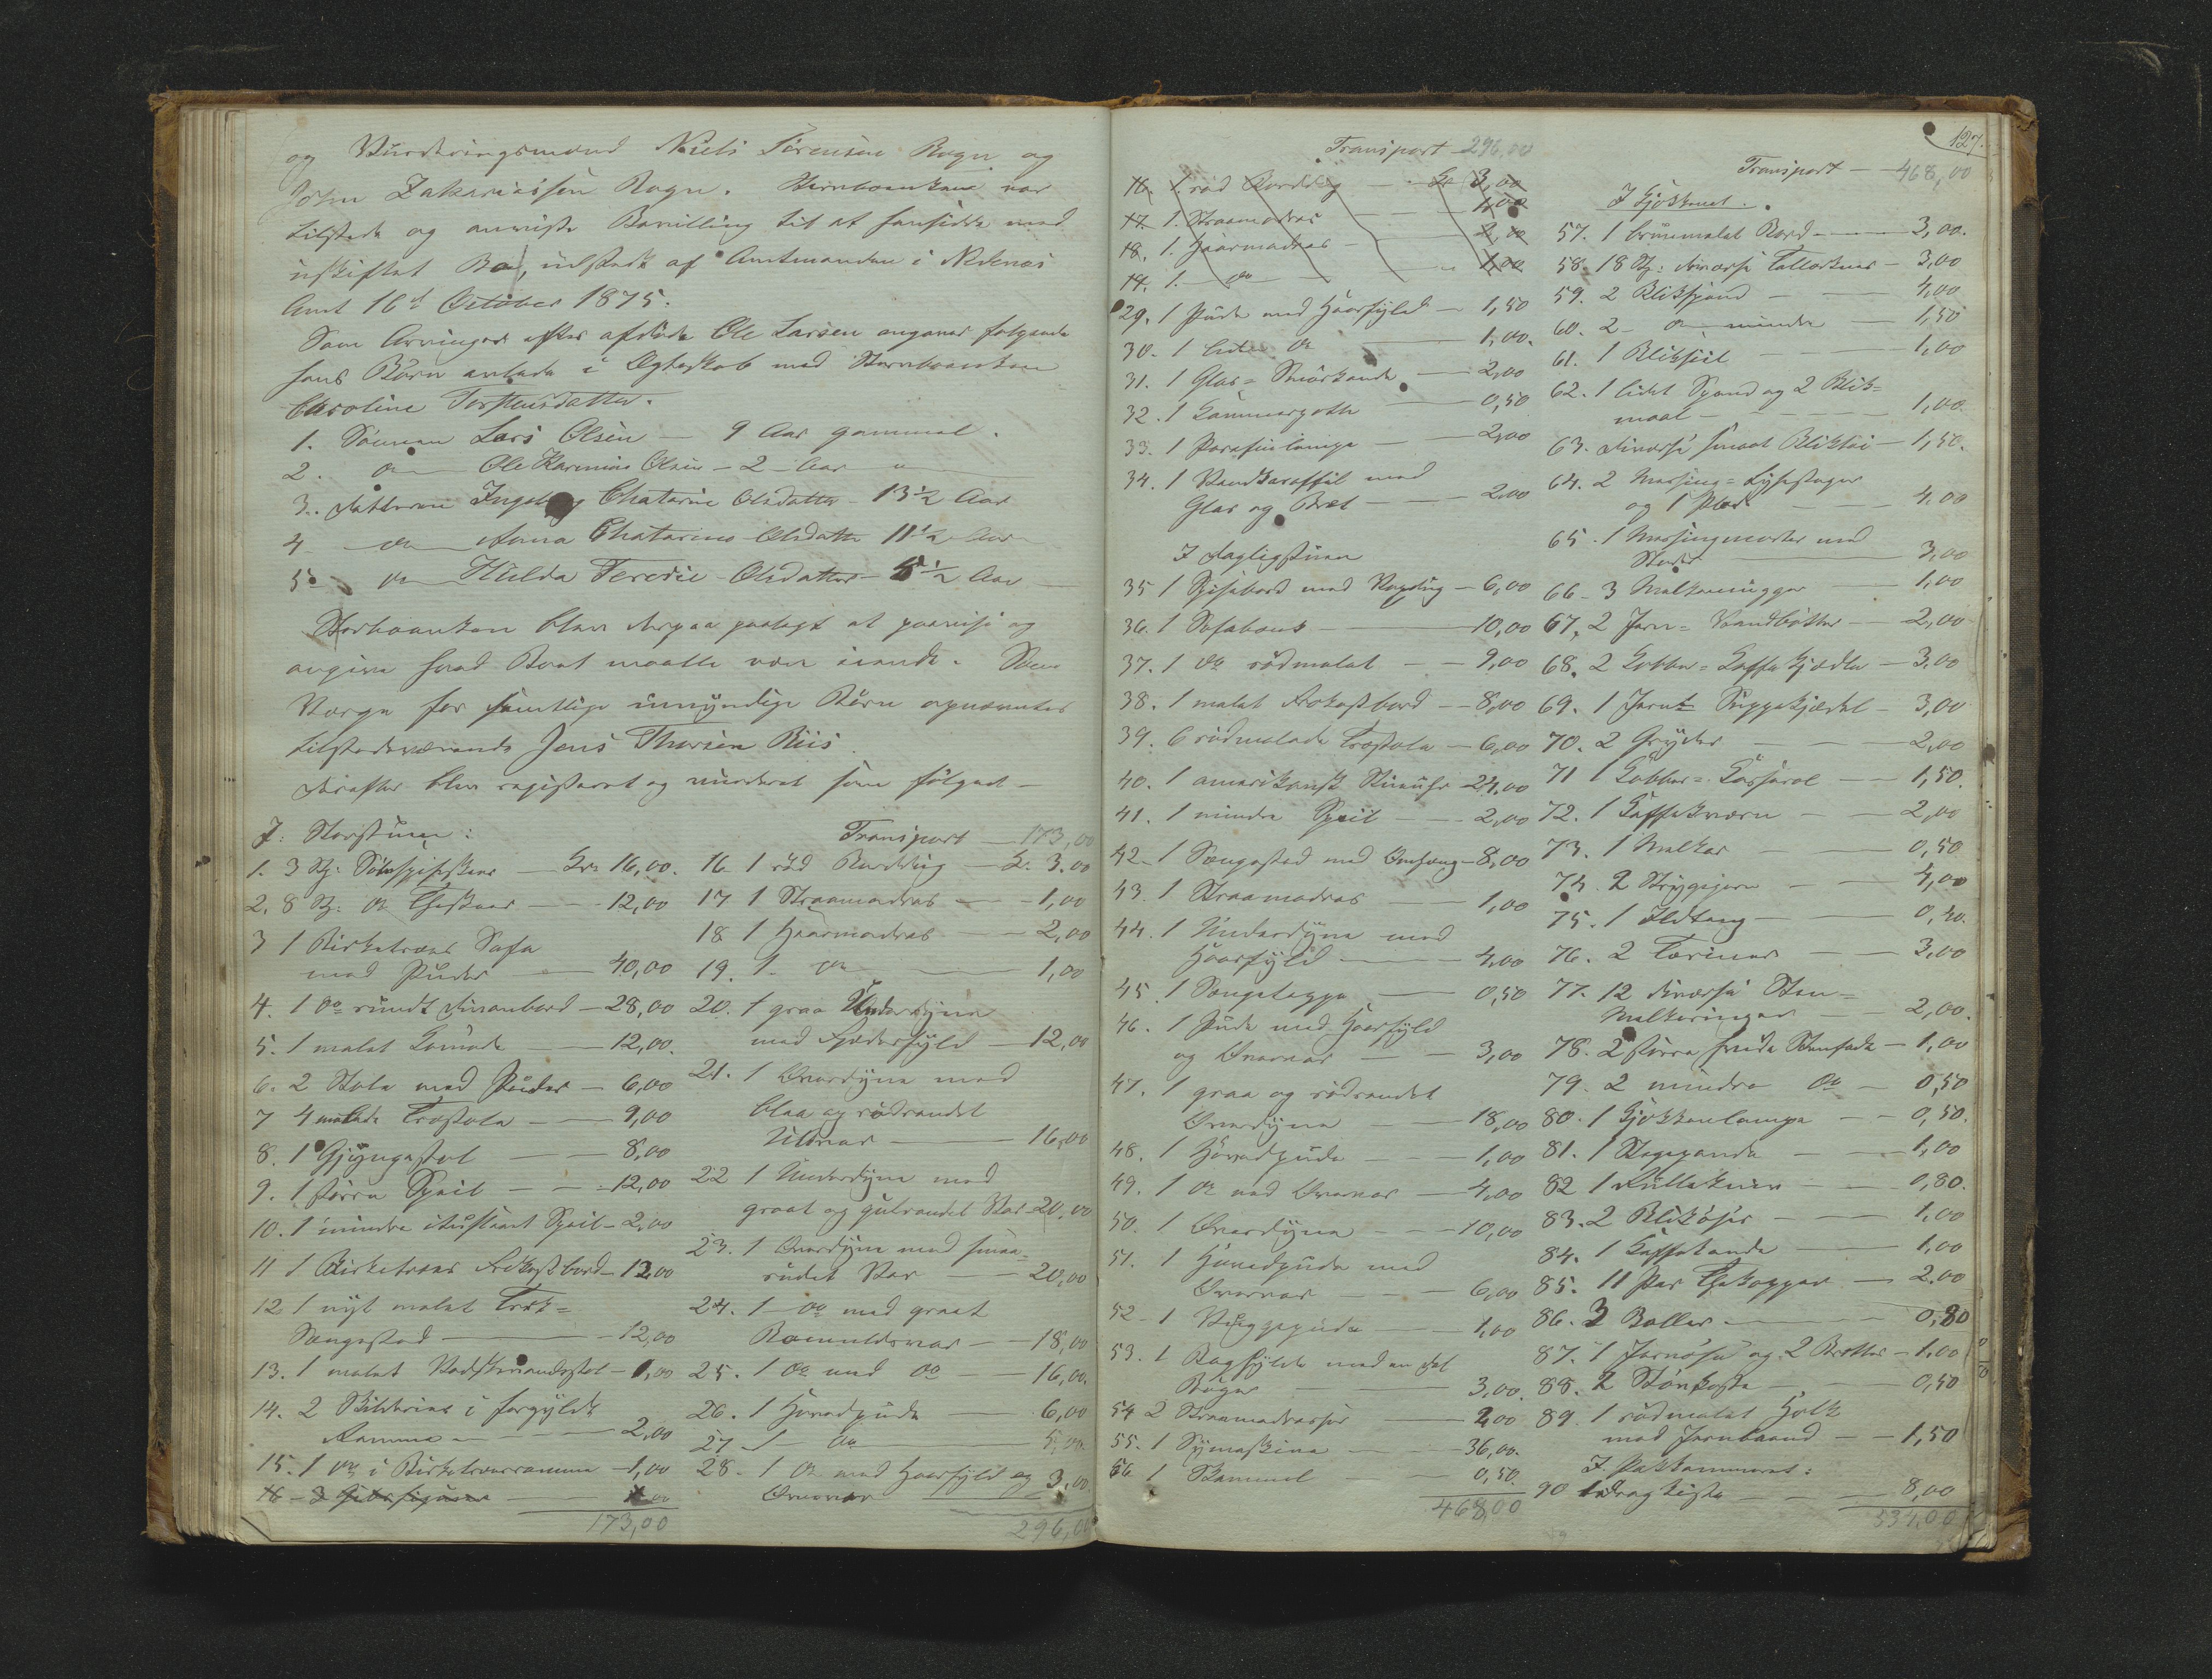 og Vurderingsmænd Niels Terensen Bogn og
John Zakariassen Bogn. Sterbeenken var
tilstede og anviste Bevilling til at hensidde med
uskiftet Bo, udstedt af Amtmanden i Nedenæs
Amt 16d October 1875.
Som Arvinger efter afdøde Ole Larsen angaves følgende
hans Børn avlede i Ægteskab med Sterboenken
Caroline Torstensdatter.
1. Sønnen Lars Olsen — 9 Aar gammel.
2. do Ole Olsen — 2 — Aar
3. Datteren Ingeborg Chatarine Olsdatter — 13½ Aar
4 do Anna Chatarine Olsdatter 11½ Aar
5. do Hulda Teresie Olsdatter — 5½ Aar
Sterboenken blev derpaa paalagt at paavise og
angive hvad Boet maatte være eiende. Som
Værge for samtlige umyndige Børn opnævntes
tilstedeværende Jens Thorsen Riis.
Derefter blev registeret og vurderet som følger —
I: Storstuen:
1. 3 St: Sølvspiseskeer — Kr: 16,00.
2. 8 St: do Theskeer — 12,00
3 1 Birketræes Sofa
med Puder — 40,00
4. 1 do rundt Divanbord — 28,00
5. 1 malet Komode — 12,00.
6. 2 Stole med Puder — 6,00
7 4 malede Træstole — 9,00
8. 1 Gyngestol — 8,00
9. 1 større Speil — 12,00
10. 1 mindre Speil — 2,00
11 1 Birketræes Frokostbord — 12,00
12 1 nyt malet Træk=
Sengested — 12,00
13. 1 malet Vadskevandsstol — 1,00
14. 2 Skilderier i forgyldt
Ramme — 2,00
15. 1 do i Birketræesramme — 1,00
16 — 3 — 1,00
173,00
Transport — 173,00
16. 1 rød Bordteig — Kr. 3.00
17 1 Straamadras — 1,00
18 1 Haarmadras — 2,00
19. 1 do — 1,00
20. 1 graa Underdyne
med Fjederfyld — 12,00
21. 1 Overdyne med
blaa og rødrandet
— 16,00
22 1 Underdyne med
graat og gulrandet Var — 20,00
23. 1 Overdyne med smaa=
rudet Var — 20,00
24. 1 do med graat
Bomuldsvar — 18,00
25. 1 do med do — 16,00.
26. 1 Hovedpude — 6,00
27 1 do — 5,00.
28. 1 do med Haarfyld og
Overvar 3,00
296,00
Transport 296,00
16. 1 rød — Kr 3,00
17. 1 Straamadras — 1,00
18. 1. Haarmadras — 2,00
19. 1. do — 1,00
29. 1 Pude med Haarfyld — 1,50
30. 1 liden do — 1,00.
31. 1 Glas= Smørkande — 2,00
32. 1 — 0,50
33. 1 Parafinlampe — 2,00
34. 1 Vandkaraffel med
Glas og Bret — 2,00
I Dagligstuen
35 1 Spisebord med Voxdug — 6,00
36. 1 Sofabænk — 10,00
37. 1 do rødmalet — 9,00
38. 1 malet Frokostbord — 8,00
39. 6 rødmalede Træstole — 6,00
40. 1 amerikansk Stueuhr — 24,00
41. 1 mindre Speil — 2,00
42 — 1 Sengested med Omhæng — 8,00
43. 1 Straamadras — 1,00
44. 1 Underdyne med
Haarfyld — 4,00
45. 1 Sengeteppe — 0,50
46. 1 Pude med Haarfyld
og Overvar — 3,00
47. 1 graa og rødrandet
Overdyne — 18,00
48. 1 Hovedpude — 1,00
49. 1 do med Overvar — 4,00
50. 1 Overdyne — 10,00
51. 1 Hovedpude med
Overvar — 6,00
52 — 1 Vuggepude — 1,00
53. 1 Boghylde med en Del
Bøger — 3,00.
54 2 Straamadrasser — 2,00
55. 1 Symaskine — 36,00.
56 1 Skammel — 0,50
468,00
127.
Transport — 468,00
I Kjøkkenet.
57. 1 brunmalet Bord — 3,00.
58. 18 St: diverse Tallerkner — 3,00
59. 2 Blikspand — 4,00
60. 2 — do mindre — 1,50
61. 1 Blik — 1,00
62. 1 lidet Spand og 2 Blik=
maal — 1,00
63. Diverse smaat Bliktøi — 1,50.
64. 2 Messing= Lysestager
og 1 — 4,00
65. 1 Messingmorter med
Støder — 3,00
66 — 3 — 1,00
67. 2 Jern= Vandbøtter — 2,00
68. 2 Kobber= Kaffekjedler — 3,00
69. 1 Jern Suppekjedel — 3,00
70. 2 Gryder — 2,00
71 1 Kobber= Kasserol — 1,50.
72. 1 Kaffekværn — 2,00
73. 1 — 0,50
74. 2 Strygejern — 4,00
75. 1 Ildtang — 0,40.
76. 2 Toriner — 3,00
77. 12 diverse Sten=
Melkeringer — 2,00.
78. 2 større hvide Stenfade — 1,00
79. 2 mindre do — 0,50
80. 1 Kjøkkenlampe — 0,50.
81. 1 Stegepande — 1,00
82 1 — 0,80.
83. 2 — 1,00
84. 1 Kaffekande — 1,00
85. 11 Par Thekopper — 2,00
86. 3 Boller — 0,80
87. 1 Jernøse og 2 Bretter — 1,00
88. 2 — 0,50
89. 1 rødmalet Holk
med Jernbaand — 1,50
I Pakkammeret:
90 1 Dragkiste — 8,00
534,00